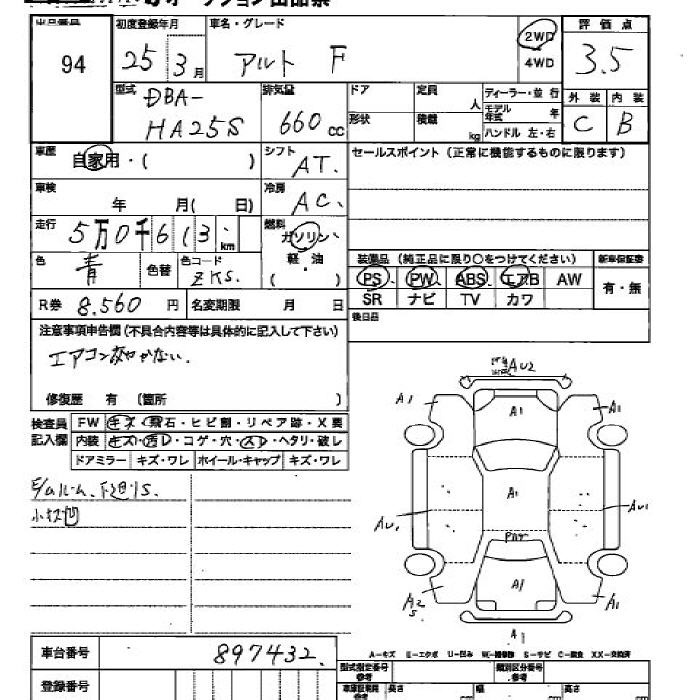 オークション出品票
出品番号 初度登録年月 車名・グレード 2WD 評価点
94 25 3月 アルト F 4WD 3.5
型式 排気量 ドア 定員 人 ディーラー・並行 外装 内装
DBA- HA25S 660cc 形状 積載 kg モデル年式 年 C B
ハンドル 左・右
車歴 自家用・( ) シフト AT. セールスポイント(正常に機能するものに限ります)
車検 年 月( 日) 冷房 AC、
走行 5万0千613.km 燃料 ガソリン・軽・油
色 青 色替 色コード ZKS. ( )
装備品(純正品に限り○をつけてください) 新車保証書
PS PW ABS エアB AW 有・無
SR ナビ TV カワ
R券 8.560円 名変期限 月 日 後日品
注意事項申告欄(不具合内容等は具体的に記入して下さい)
エアコン
修復歴 有 (箇所 )
検査員記入欄 FW キズ・飛石・ヒビ割・リペア跡・X要
内装 キズ・汚レ・コゲ・穴・スレ・ヘタリ・破レ
ドアミラー キズ・ワレ ホイール・キャップ キズ・ワレ
小キズ凹
AU2
A1 A1 A1
A1
AU1 AU1
A2 S A1 A1
A1
A-キズ E-エクボ U-凹み W-補修跡 S-サビ C-腐食 XX-交換済
車台番号 897432.
登録番号
型式指定番号 参考 類別区分番号 参考
車庫証明用 参考 長さ cm 幅 cm 高さ cm